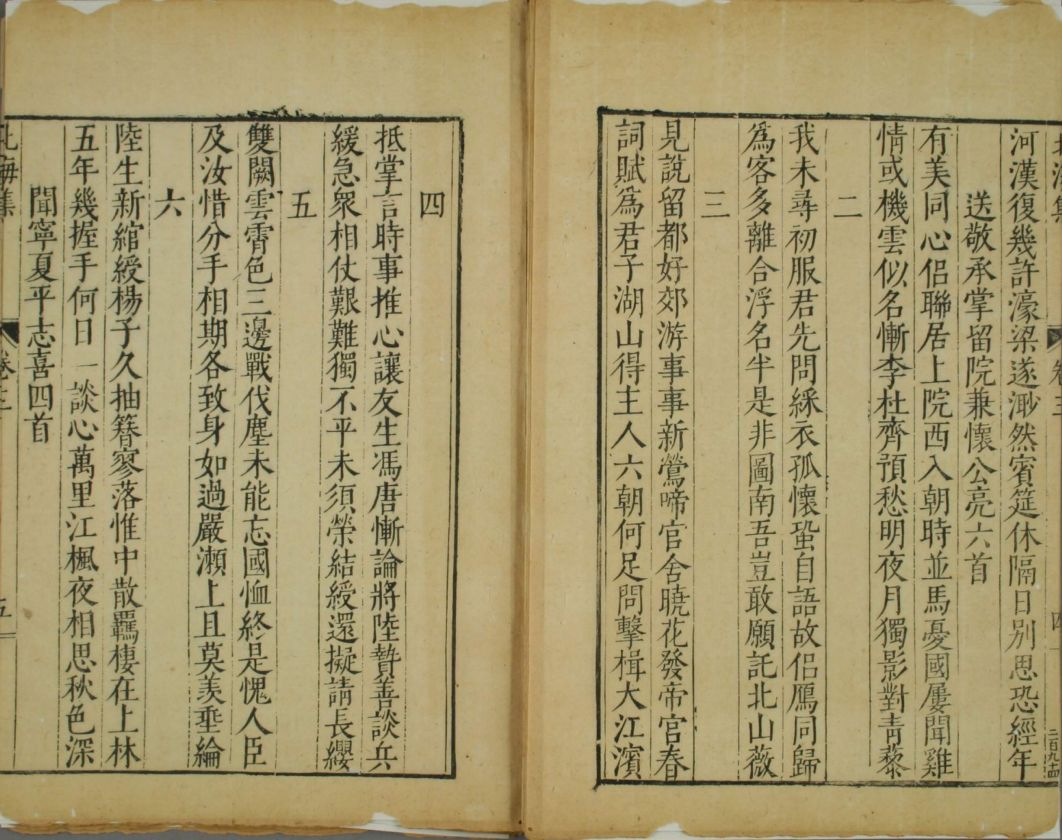 河漢復幾許濠梁遂渺然賓筵休隔日别思恐經年
送敬承掌留院兼懷公亮六首
有美同心侶聯居上院西入朝時並馬憂國屢聞雞
情或機雲似名慚李杜齊預愁明夜月獨影對青藜
二
我未尋初服君先問綵衣孤懷蛩自語故侶鴈同歸
為客多離合浮名半是非圖南吾豈敢願託北山薇
三
見說留都好郊游事事新鶯啼官舍曉花發帝宫春
詞賦為君子湖山得主人六朝何足問擊楫大江濱
四
抵掌言時事推心讓友生馮唐慚論將陸贄善談兵
緩急衆相仗艱難獨不平未須榮結綬還擬請長纓
五
雙闕雲霄色三邊戰伐塵未能忘國恤終是愧人臣
及汝惜分手相期各致身如過嚴瀨上且莫羨垂綸
六
陸生新綰綬楊子久抽簪寥落惟中散羈棲在上林
五年幾握手何日一談心萬里江楓夜相思秋色深
聞寧夏平志喜四首
北海集
卷三
五